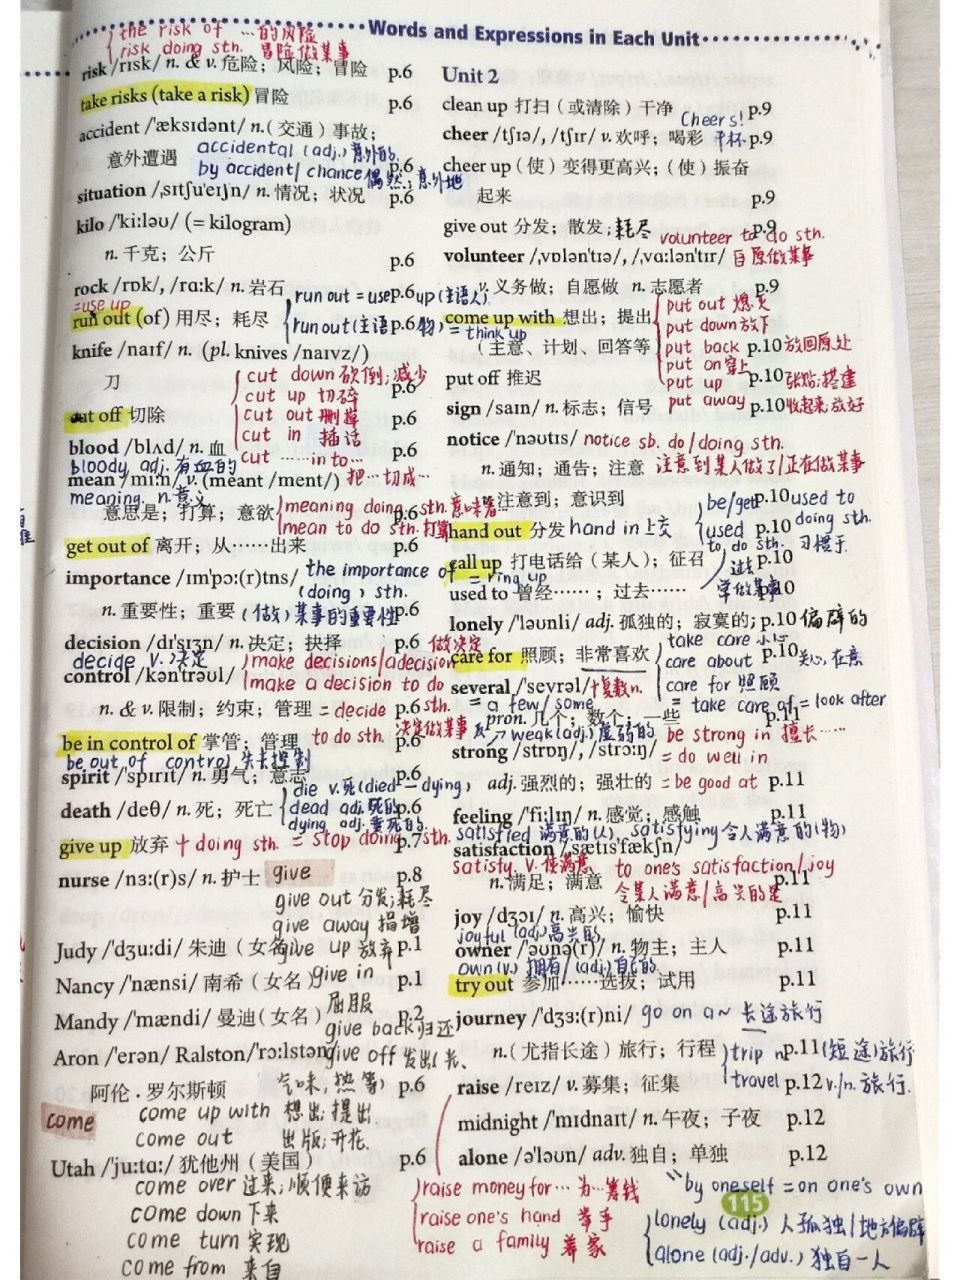 Words and Expressions in Each Unit
the risk of …的风险
risk doing sth. 冒险做某事
risk /rɪsk/ n. & v. 危险；风险；冒险 p.6
take risks (take a risk) 冒险 p.6
accident /'æksɪdənt/ n.(交通) 事故；
意外遭遇 p.6
accidental (adj.) 意外的
by accident / chance 偶然，意外地
situation /ˌsɪtʃu'eɪʃn/ n. 情况；状况 p.6
kilo /'ki:ləʊ/ (= kilogram)
n. 千克；公斤 p.6
rock /rɒk/, /rɑ:k/ n. 岩石 p.6
=use up
run out (of) 用尽；耗尽 p.6
run out = use up (主语人)
run out (主语物)
knife /naɪf/ n. (pl. knives /naɪvz/)
刀 p.6
cut off 切除 p.6
cut down 砍倒；减少
cut up 切碎
cut out 删掉
cut in 插话
cut …… in to…
把…切成…
blood /blʌd/ n. 血 p.6
bloody adj. 有血的
mean /mi:n/ v. (meant /ment/)
meaning n. 意义
意思是；打算；意欲 p.6
meaning doing sth. 意味着…
mean to do sth. 打算
get out of 离开；从……出来 p.6
importance /ɪm'pɔ:(r)tns/
n. 重要性；重要 p.6
the importance of
(doing) sth.
(做) 某事的重要性
decision /dɪ'sɪʒn/ n. 决定；抉择 p.6
decide v. 决定
做决定
make decisions/a decision
make a decision to do
sth.
= decide
to do sth. 决定做某事
control /kən'trəʊl/
n. & v. 限制；约束；管理 p.6
be in control of 掌管；管理 p.6
be out of control 失去控制
spirit /'spɪrɪt/ n. 勇气；意志 p.6
death /deθ/ n. 死；死亡 p.6
die v. 死 (died — dying)
dead adj. 死的
dying adj. 垂死的
give up 放弃 p.7
+ doing sth. = stop doing sth.
nurse /nɜ:(r)s/ n. 护士 p.8
give
give out 分发；耗尽
give away 捐赠
give up 放弃
give in
屈服
give back 归还
give off 发出(光、
气味，热等)
Judy /'dʒu:di/ 朱迪（女名） p.1
Nancy /'nænsi/ 南希（女名） p.1
Mandy /'mændi/ 曼迪（女名） p.2
Aron /'erən/ Ralston/'rɔ:lstən/
阿伦·罗尔斯顿 p.6
come
come up with 想出；提出
come out 出版；开花
Utah /'ju:tɑ:/ 犹他州（美国） p.6
come over 过来；顺便来访
come down 下来
come turn 实现
come from 来自
Unit 2
clean up 打扫（或清除）干净 p.9
Cheers!
干杯
cheer /tʃɪə/, /tʃɪr/ v. 欢呼；喝彩 p.9
cheer up（使）变得更高兴；（使）振奋
起来 p.9
give out 分发；散发；耗尽 p.9
volunteer to do sth.
自愿做某事
volunteer /ˌvɒlən'tɪə/, /ˌvɑ:lən'tɪr/
v. 义务做；自愿做 n. 志愿者 p.9
come up with 想出；提出
= think up
（主意、计划、回答等） p.10
put out 熄灭
put down 放下
put back 放回原处
put on 穿上
put up 张贴；搭建
put away 收起来，放好
put off 推迟 p.10
sign /saɪn/ n. 标志；信号 p.10
notice /'nəʊtɪs/
notice sb. do / doing sth.
注意到某人做了/正在做某事
n. 通知；通告；注意
v. 注意到；意识到 p.10
hand out 分发 p.10
hand in 上交
be/get used to
doing sth.
习惯于
used to do sth.
过去
常做某事
call up 打电话给（某人）；征召 p.10
= ring up
used to 曾经……；过去…… p.10
lonely /'ləʊnli/ adj. 孤独的；寂寞的; p.10
偏僻的
care for 照顾；非常喜欢 p.10
take care 小心
care about 关心，在意
care for 照顾
= take care of = look after
several /'sevrəl/
+复数n.
= a few / some
pron. 几个；数个；一些 p.11
反→ weak (adj.) 虚弱的
strong /strɒŋ/, /strɔ:ŋ/
adj. 强烈的；强壮的 p.11
be strong in 擅长……
= do well in
= be good at
feeling /'fi:lɪŋ/ n. 感觉；感触 p.11
satisfied 满意的(人), satisfying 令人满意的(物)
satisfaction /ˌsætɪs'fækʃn/
satisfy v. 使满意
n. 满足；满意 p.11
to one's satisfaction / joy
令某人满意/高兴的是
joy /dʒɔɪ/ n. 高兴；愉快 p.11
joyful (adj.) 高兴的
owner /'əʊnə(r)/ n. 物主；主人 p.11
own (v.) 拥有 / (adj.) 自己的
try out 参加……选拔；试用 p.11
journey /'dʒɜ:(r)ni/
go on a ~ 长途旅行
n.（尤指长途）旅行；行程 p.11
trip n. (短途)旅行
travel v./n. 旅行.
raise /reɪz/ v. 募集；征集 p.12
midnight /'mɪdnaɪt/ n. 午夜；子夜 p.12
alone /ə'ləʊn/ adv. 独自；单独 p.12
raise money for … 为…筹钱
raise one's hand 举手
raise a family 养家
by oneself = on one's own
lonely (adj.) 人孤独/地方偏僻
alone (adj./adv.) 独自一人
115